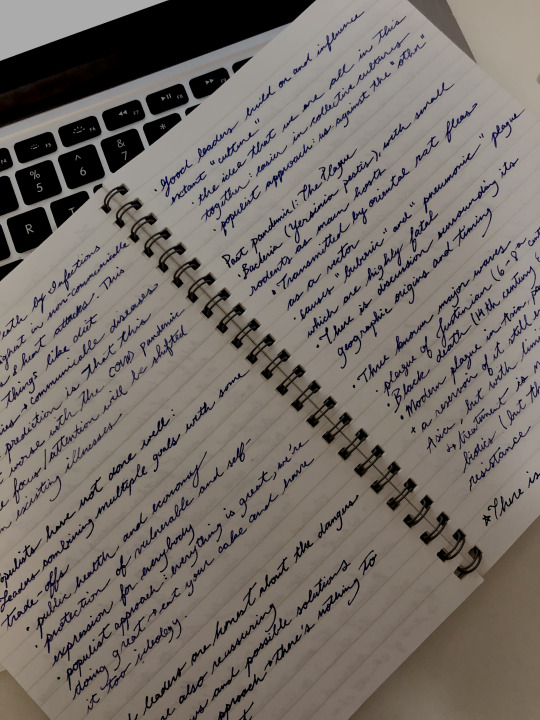 %
5
^
6
&
7
*
R
T
eath by infections
things like diet
communicable diseases
prediction is that this
worse with the COVID pandemic
focus/attention will be shifted
existing illnesses
populists have not done well:
Leaders combining multiple goals with some
trade-offs
• public health and economy
• protection of vulnerable and self-
expression for everybody
• populist approach: everything is great, we're
doing great → eat your cake and have
it too ideology.
leaders are honest about the dangers
also reassuring
and possible solutions
approach → there's nothing to
• Good leaders build on and influence
extant "culture"
• the idea that we are all in this
together: easier in collective cultures
• populist approach: us against the "other"
Past pandemic 1: The Plague
• Bacteria (Yersinia pestis), with small
rodents as main hosts
• Transmitted by oriental rat fleas
as a vector
• causes "bubonic" and "pneumonic" plague
which are highly fatal
• There is discussion surrounding its
geographic origins and timing
• Three known major waves
plague of Justinian (6-8th
• Black death (14th century
• Modern plague in Asia
+ a reservoir of it still
Asia, but with
↳ treatment is
biotics (but th
resistance
*There is